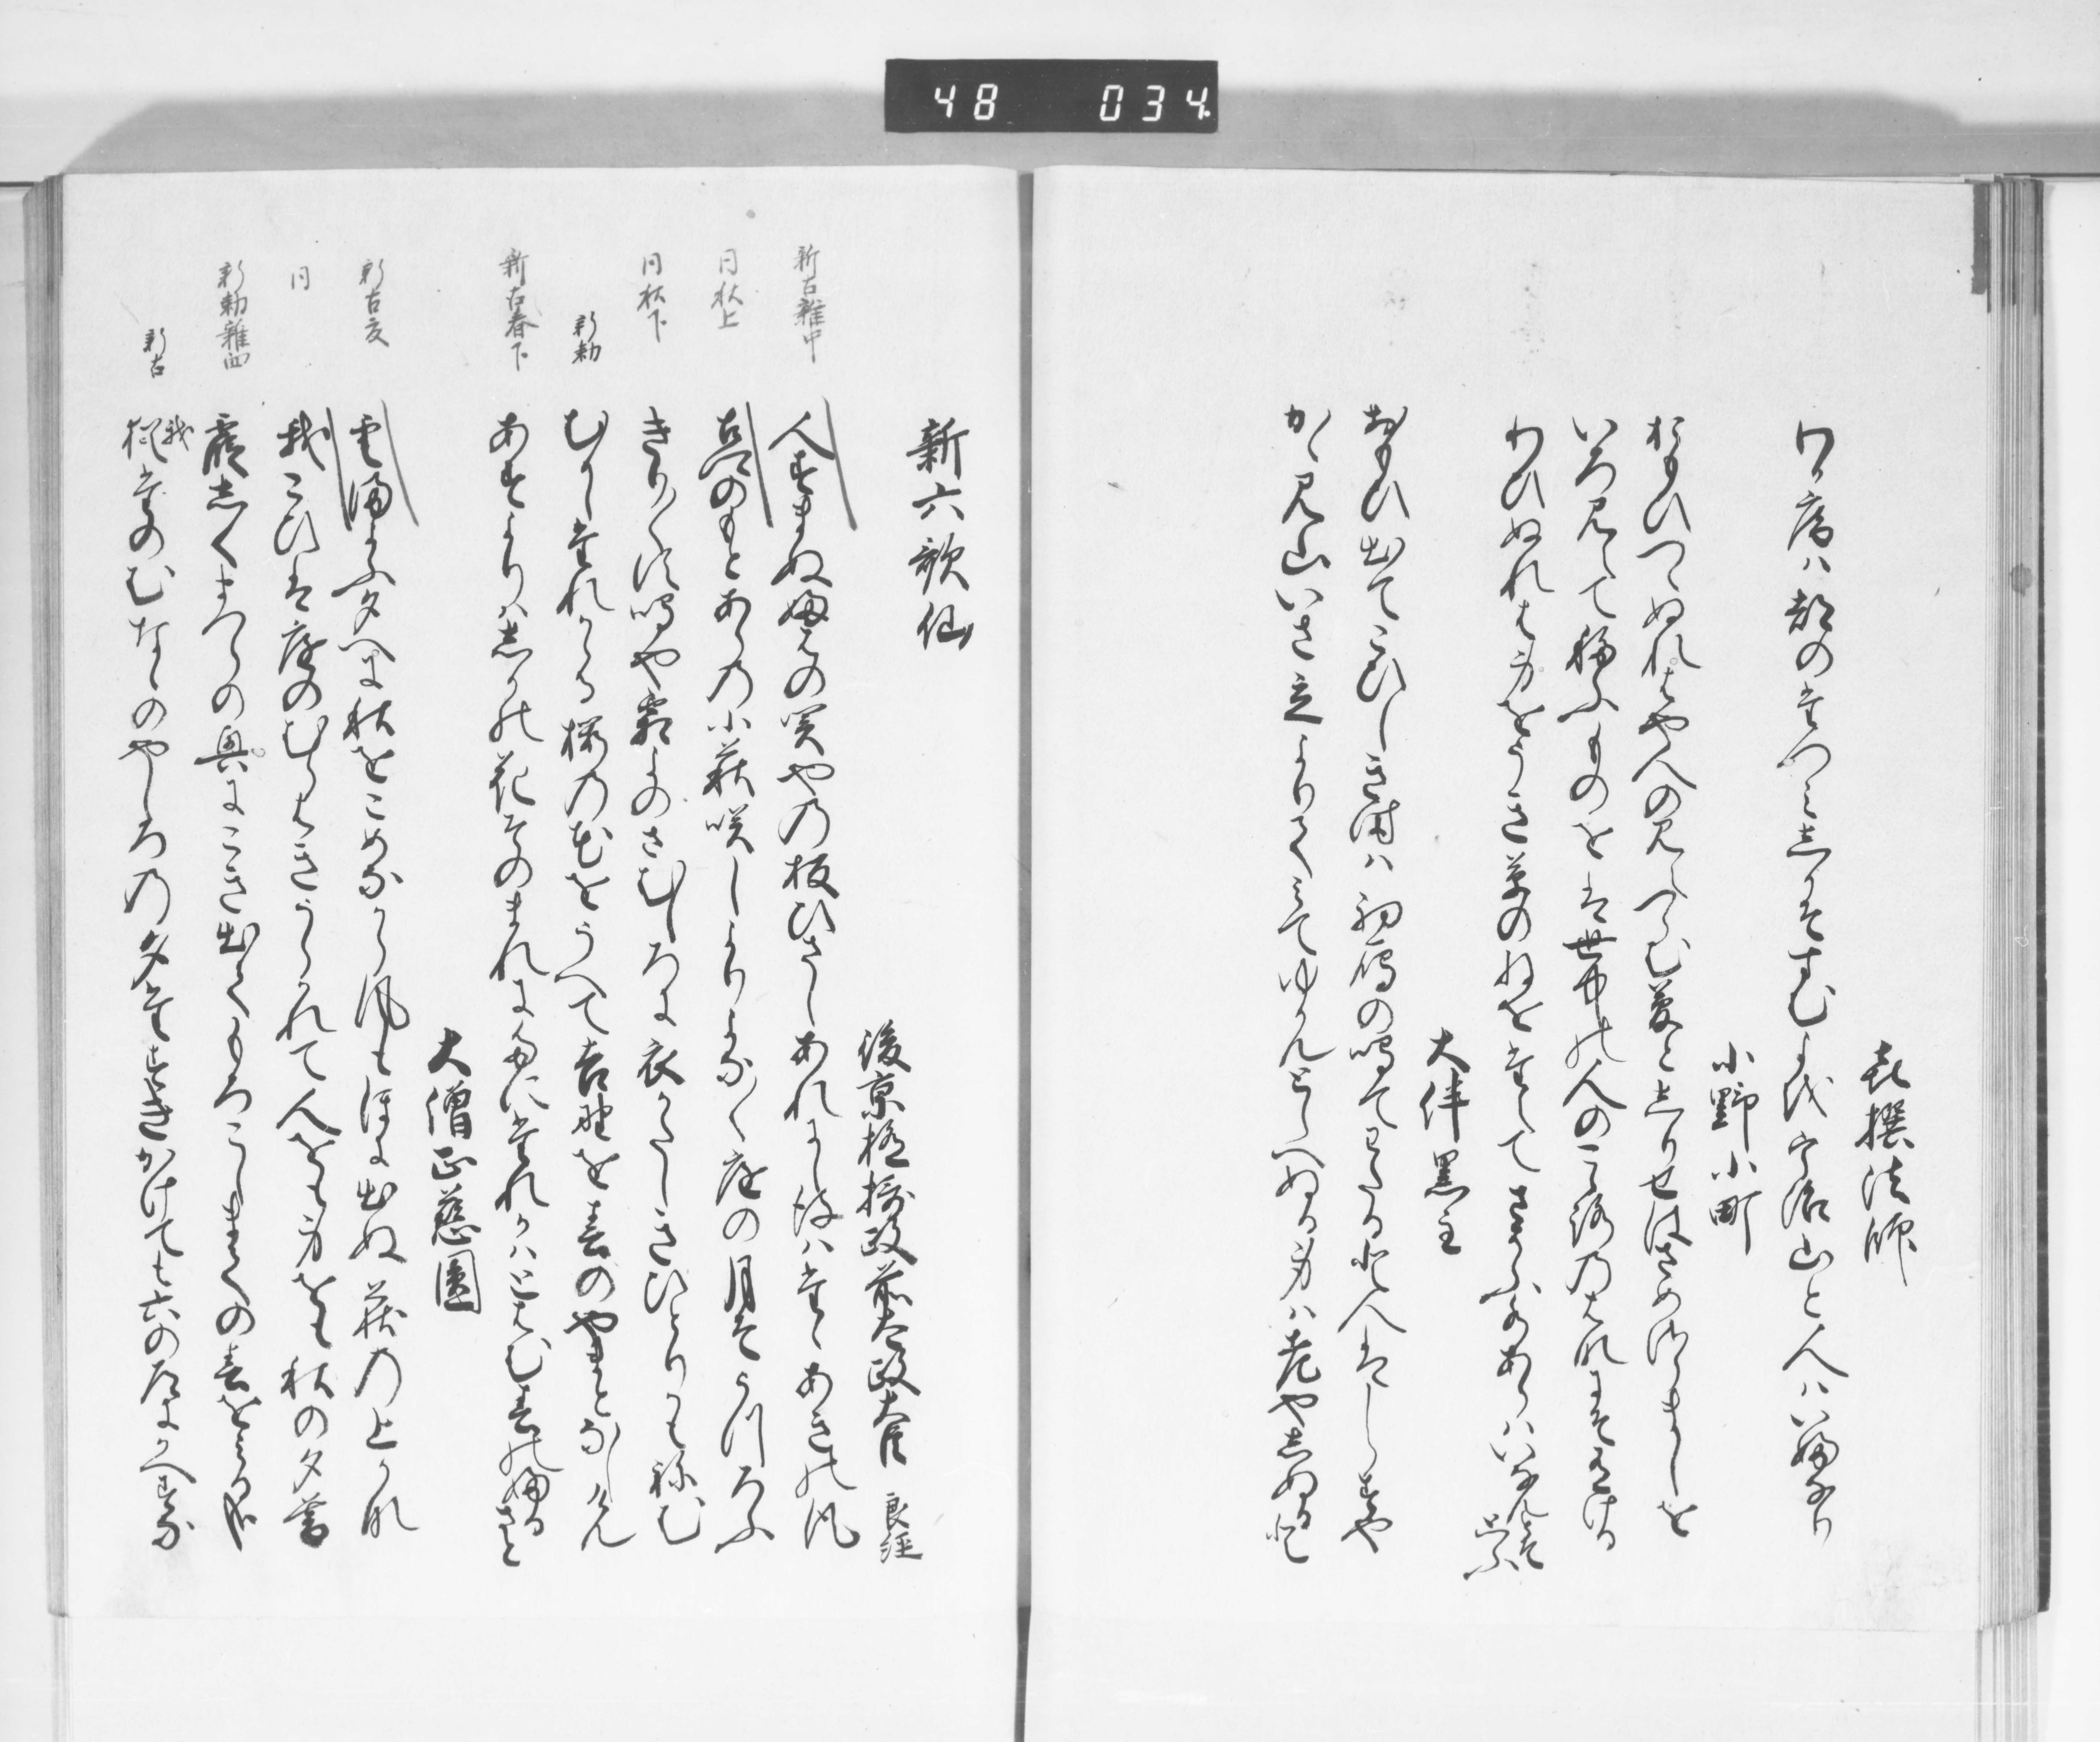 48 034
喜撰法師
わか庵ハ都のたつみしかそすむよを宇治山と人ハいふなり
小野小町
おもひつゝぬれはや人の見えつらむ夢としりせはさめさらましを
いろ見えて移ふものは世中の人の心の花にそ有ける
わひぬれは身をうき草のねをたえてさそふ水あらはいなんとそ思ふ
大伴黒主
おもひ出てこひしき時ハ初鴈の鳴てわたると人はしらすや
かゝ見山いさ立よりてみてゆかんとしへぬる身ハ老やしぬると
新六歌仙
後京極摂政前太政大臣 良経
新古雑中
人すまぬ不破の関やの板ひさしあれにし後ハたゝあきの風
同秋上
古郷のもとあらの小萩咲しよりよな〱庭の月そうつろふ
同秋下
きり〱す鳴や霜よのさむしろに衣かたしきひとりかも祢む
新勅
むかしたれかゝる桜の花をうへて吉野を春のやまとなしけん
新古春下
あすよりハしかの花そのまれにたにたれかハとはむ春のふるさと
大僧正慈圓
新古夏
雲まよふ夕へに秋をこめなから風もほに出ぬ荻の上かな
同
我こひは庭のむらはきうらかれて人をも身をも秋の夕暮
新勅雑四
霞しくまつらの奥にこき出てもろこしまての春をみるかな
新古
我
猶たのむなゝのやしろの夕たすきかけても六の道にかへすな